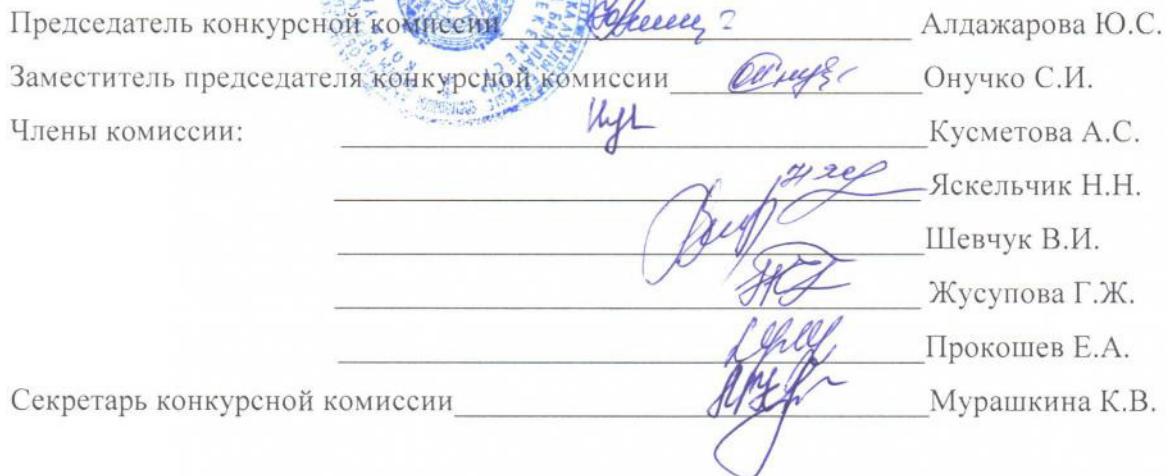 Председатель конкурсной комиссии Алдажарова Ю.С.
Заместитель председателя конкурсной комиссии Онучко С.И.
Члены комиссии: Кусметова А.С.
Яскельчик Н.Н.
Шевчук В.И.
Жусупова Г.Ж.
Прокошев Е.А.
Секретарь конкурсной комиссии Мурашкина К.В.